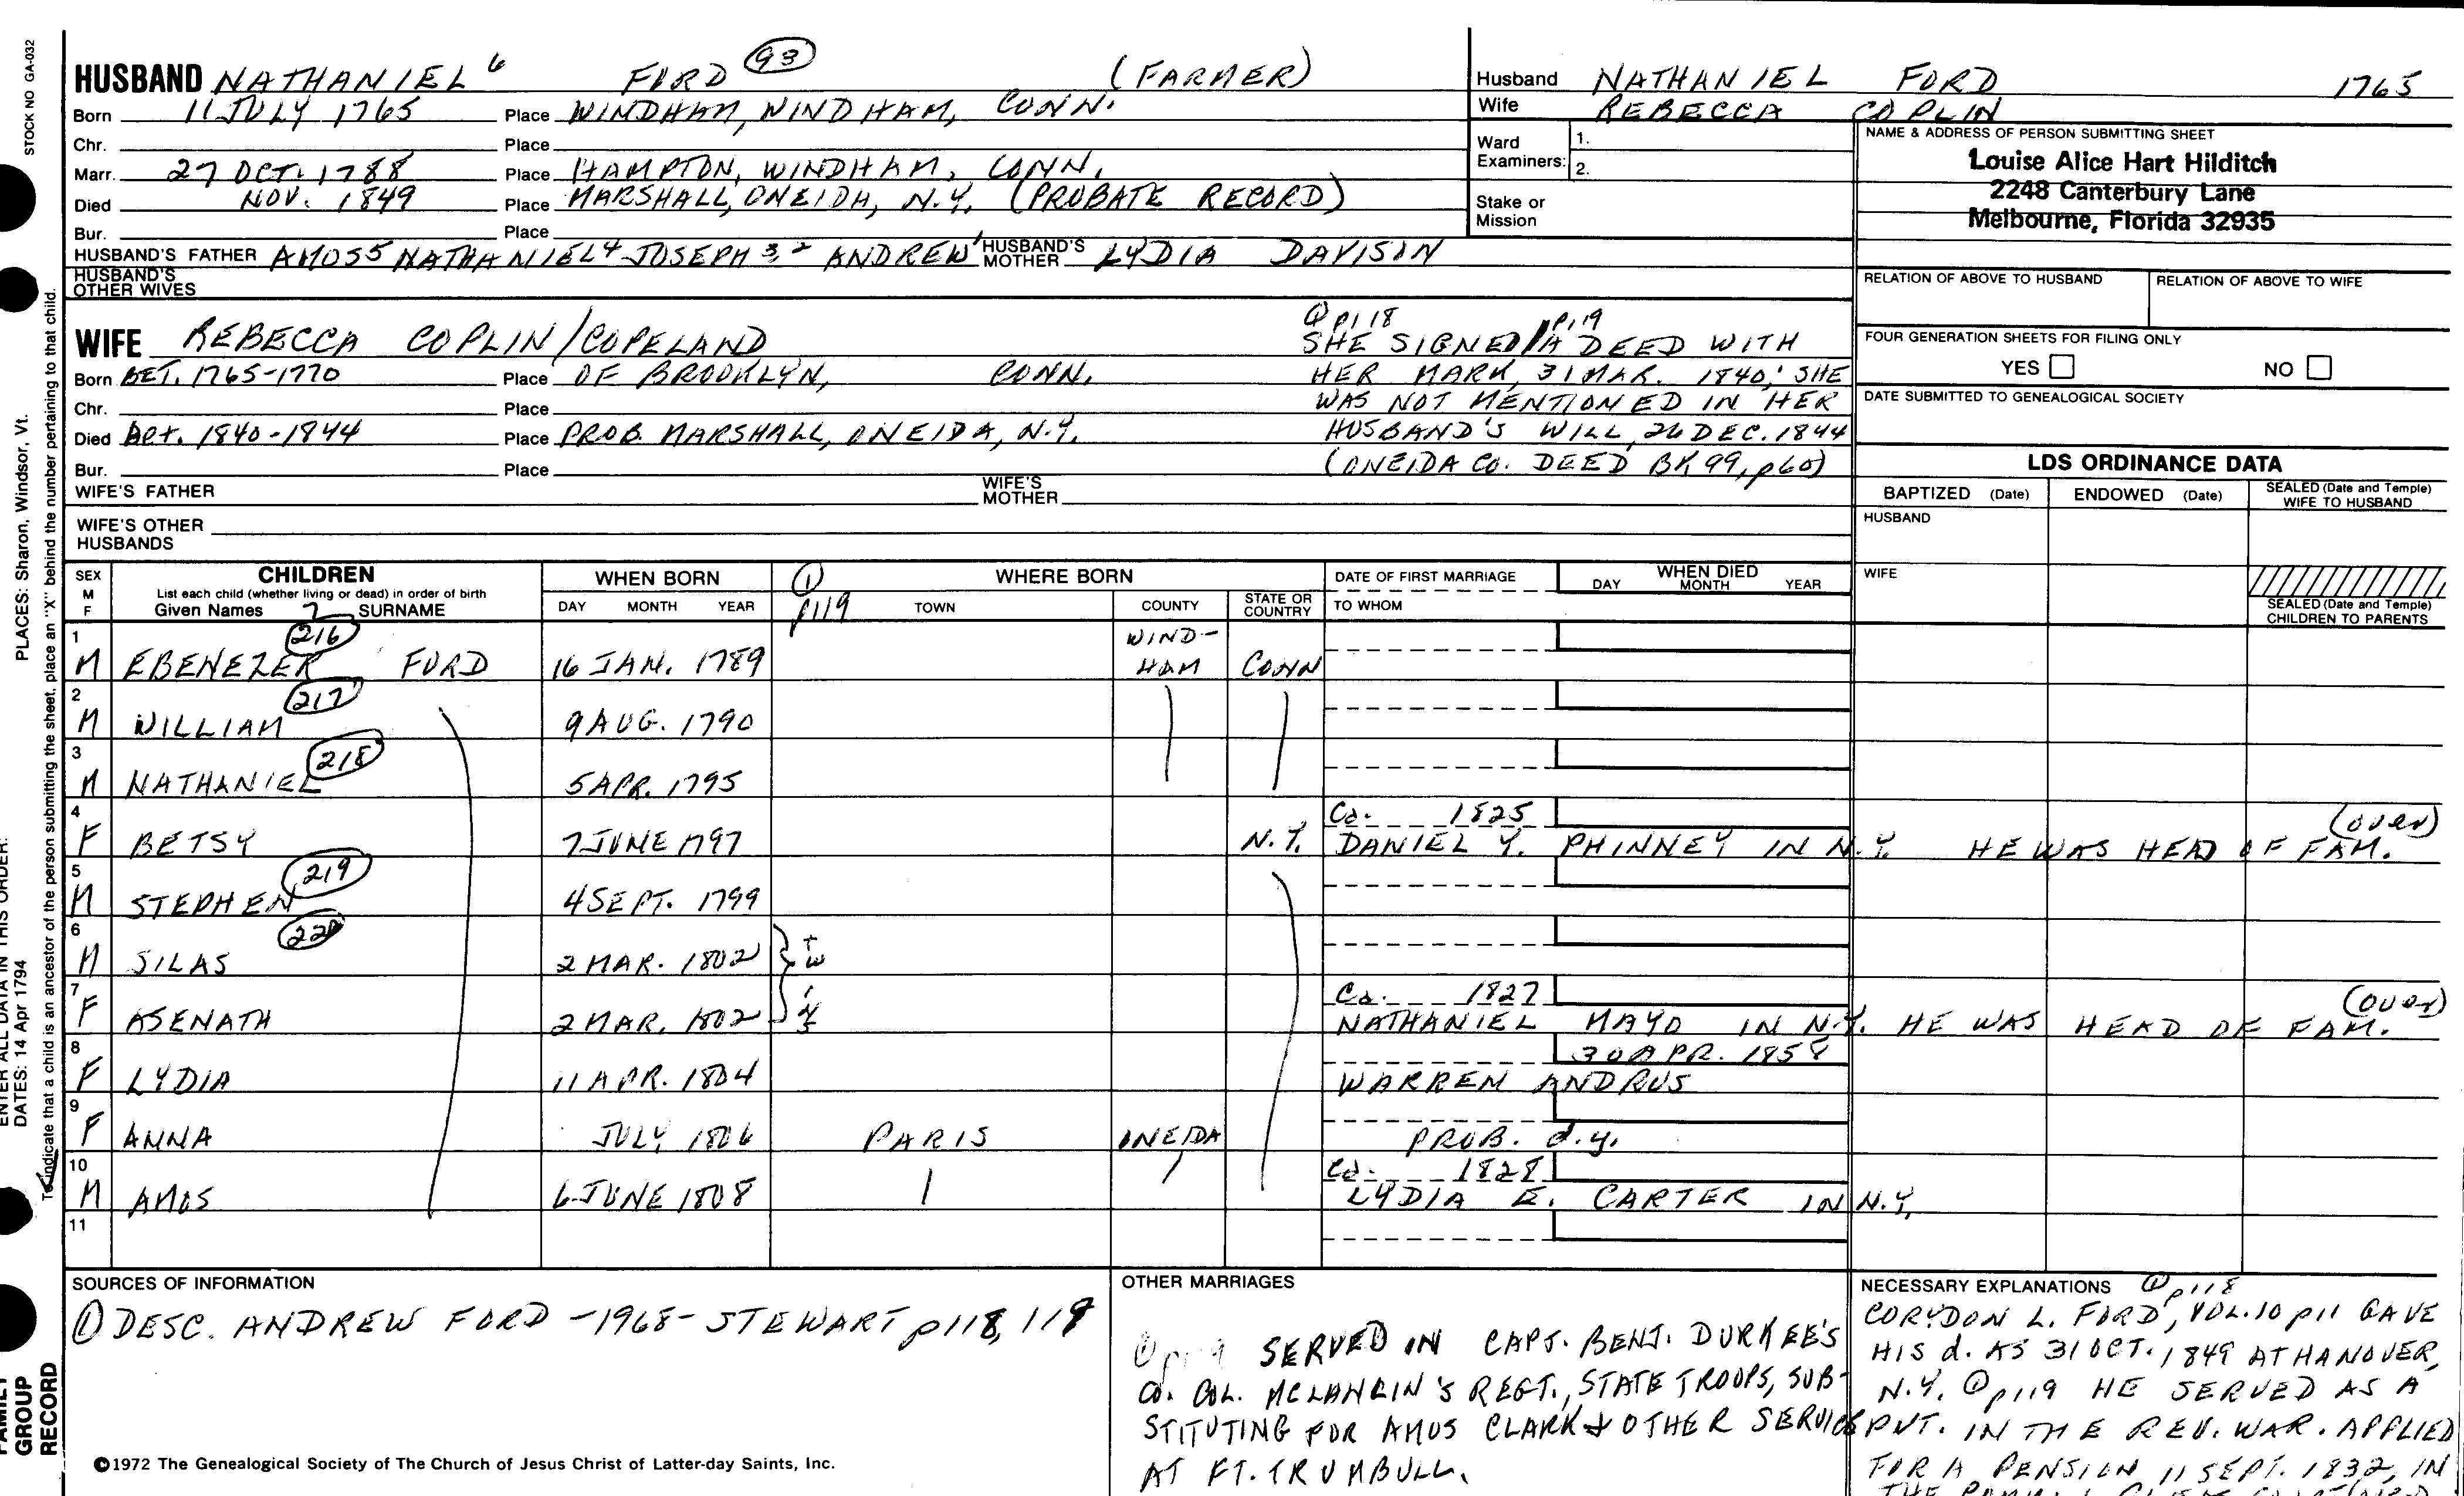 STOCK NO GA-032
HUSBAND NATHANIEL 6 FORD 93 (FARMER)
Born 11 JULY 1765 Place WINDHAM, WINDHAM, CONN.
Chr. Place
Marr. 27 OCT. 1788 Place HAMPTON, WINDHAM, CONN.
Died NOV. 1849 Place MARSHALL, ONEIDA, N.Y. (PROBATE RECORD)
Bur. Place
HUSBAND'S FATHER AMOS5 NATHANIEL4 JOSEPH 3 2 ANDREW1 HUSBAND'S MOTHER LYDIA DAVISON
HUSBAND'S OTHER WIVES
Husband NATHANIEL FORD 1765
Wife REBECCA COPLIN
Ward Examiners: 1.
2.
Stake or Mission
NAME & ADDRESS OF PERSON SUBMITTING SHEET
Louise Alice Hart Hilditch
2248 Canterbury Lane
Melbourne, Florida 32935
RELATION OF ABOVE TO HUSBAND RELATION OF ABOVE TO WIFE
FOUR GENERATION SHEETS FOR FILING ONLY
YES NO
DATE SUBMITTED TO GENEALOGICAL SOCIETY
WIFE REBECCA COPLIN/COPELAND
Born BET. 1765-1770 Place OF BROOKLYN, CONN.
Chr. Place
Died Bet. 1840-1844 Place PROB. MARSHALL, ONEIDA, N.Y.
Bur. Place
WIFE'S FATHER WIFE'S MOTHER
WIFE'S OTHER HUSBANDS
① p118 p119
SHE SIGNED A DEED WITH
HER MARK, 31 MAR. 1840; SHE
WAS NOT MENTIONED IN HER
HUSBAND'S WILL, 26 DEC. 1844
(ONEIDA CO. DEED BK 99, p60)
LDS ORDINANCE DATA
BAPTIZED (Date) ENDOWED (Date) SEALED (Date and Temple) WIFE TO HUSBAND
HUSBAND
WIFE
SEALED (Date and Temple) CHILDREN TO PARENTS
SEX M F CHILDREN List each child (whether living or dead) in order of birth Given Names 7 SURNAME
WHEN BORN DAY MONTH YEAR
① p119 WHERE BORN TOWN COUNTY STATE OR COUNTRY
DATE OF FIRST MARRIAGE TO WHOM
WHEN DIED DAY MONTH YEAR
1 M EBENEZER 216 FORD 16 JAN. 1789 WIND-HAM CONN
2 M WILLIAM 217 9 AUG. 1790
3 M NATHANIEL 218 5 APR. 1795
4 F BETSY 7 JUNE 1797 N.Y. Ca. 1825 (over)
DANIEL Y. PHINNEY IN N.Y. HE WAS HEAD OF FAM.
5 M STEPHEN 219 4 SEPT. 1799
6 M SILAS 220 2 MAR. 1802 twins
7 F ASENATH 2 MAR. 1802 Ca. 1827 (over)
NATHANIEL MAYO IN N.Y. HE WAS HEAD OF FAM.
8 F LYDIA 11 APR. 1804 30 APR. 1858
WARREN ANDRUS
9 F ANNA JULY 1806 PARIS ONEIDA PROB. d.y.
10 M AMOS 6 JUNE 1808 Ca. 1828
LYDIA E. CARTER IN N.Y.
11
SOURCES OF INFORMATION
① DESC. ANDREW FORD -1968- STEWART p118, 119
OTHER MARRIAGES
① p119 SERVED IN CAPT. BENJ. DURKEE'S
CO. COL. MCLANLIN'S REGT., STATE TROOPS, SUB-
STITUTING FOR AMOS CLARK & OTHER SERVICE
AT FT. TRUMBULL.
NECESSARY EXPLANATIONS ① p118
CORYDON L. FORD, VOL. 10 p11 GAVE
HIS d. AS 31 OCT. 1849 AT HANOVER,
N.Y. ① p119 HE SERVED AS A
PVT. IN THE REV. WAR. APPLIED
FOR A PENSION 11 SEPT. 1832, IN
©1972 The Genealogical Society of The Church of Jesus Christ of Latter-day Saints, Inc.
PLACES: Sharon, Windsor, Vt.
ENTER ALL DATA IN THIS ORDER:
DATES: 14 Apr 1794
To indicate that a child is an ancestor of the person submitting the sheet, place an "X" behind the number pertaining to that child.
FAMILY GROUP RECORD